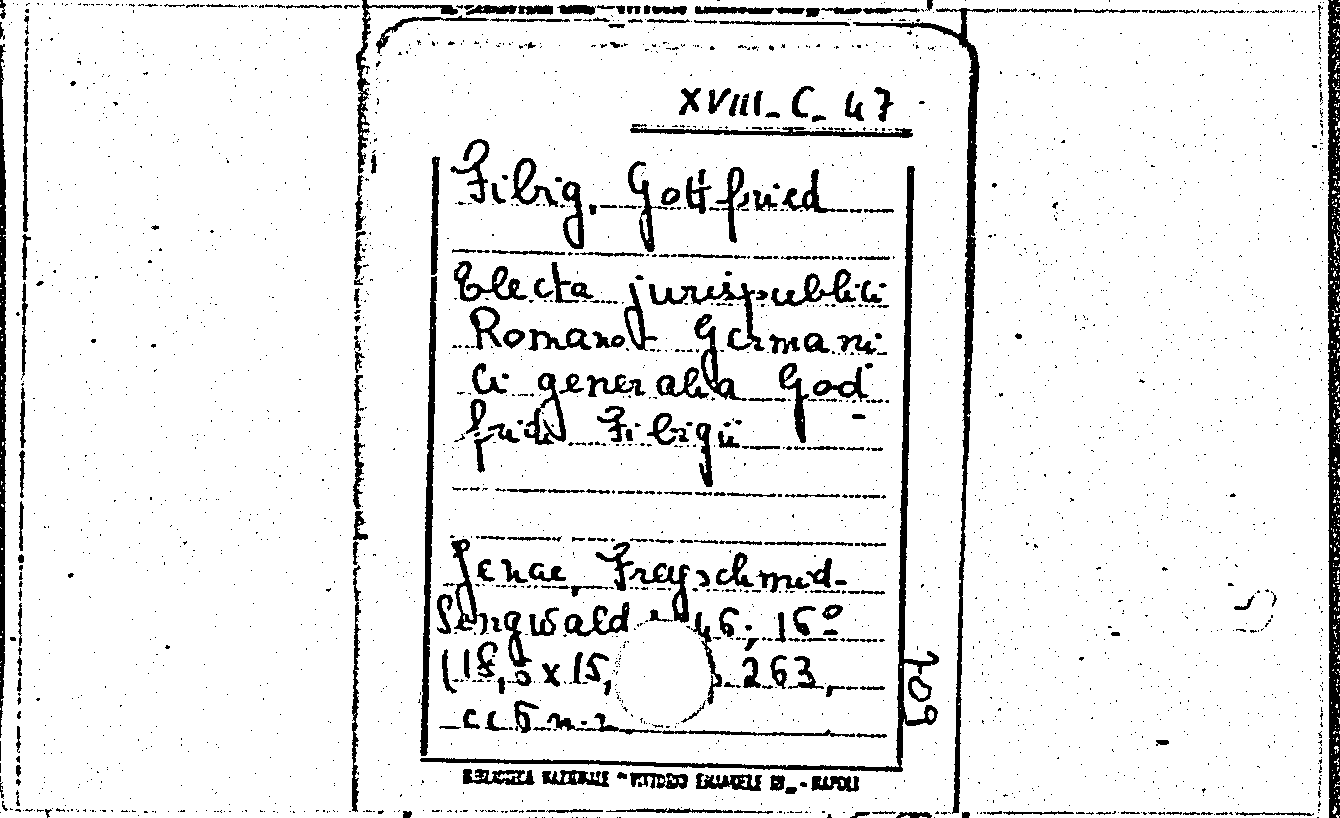 XVIII_C_47
Fibig, Gottfried
Electa jurispublici
Romano-Germani-
ci generalia God-
fridi Fibigii
Jenae, Freyschmid-
Sengwald 46; 16º
(18,5 x 15, 263,
709
BIBLIOTECA NAZIONALE "VITTORIO EMANUELE III" - NAPOLI